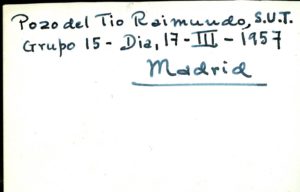 Pozo del Tio Raimundo, S.U.T.
Grupo 15 - Dia, 17 - III - 1957
Madrid